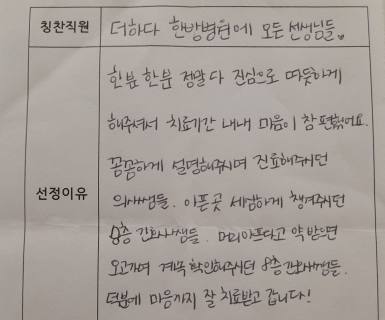 칭찬직원 더하다 한방병원에 모든 선생님들.
한분 한분 정말 다 진심으로 따뜻하게
해주셔서 치료기간 내내 마음이 참 편했어요.
꼼꼼하게 설명해주시며 진료해주시던
선정이유 의사쌤들. 아픈곳 세심하게 챙겨주시던
8층 간호사쌤들. 머리아프다고 약 받으면
오고가며 계속 확인해주시던 8층 간호사쌤들.
덕분에 마음까지 잘 치료받고 갑니다!